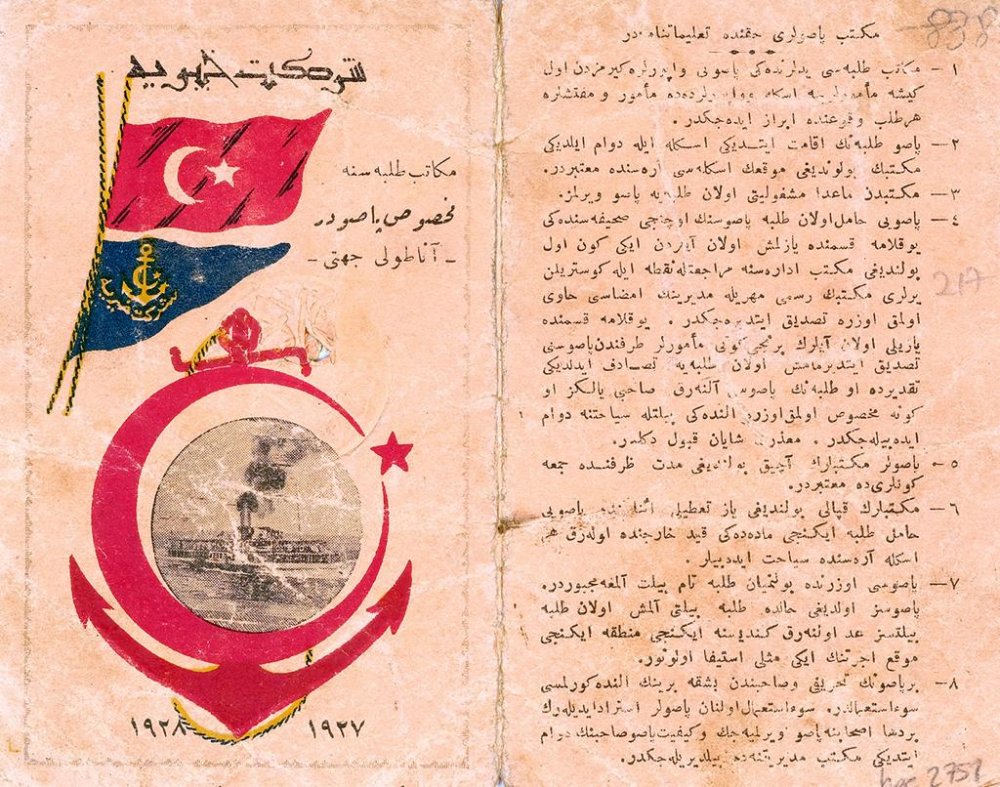 شركت خيريه
مكاتب طلبه سنه
مخصوص پاصودر
- آناطولى جهتى -
شركت خيريه
١٩٢٧
١٩٢٨
838
مكتب پاصولرى حقنده تعليماتنامه در
١ — مكاتب طلبه سى يدلرنده كى پاصويى واپورلره كيرمزدن اول
كيشه مأمورلرينه اسكله واپورلرده ده مأمور و مفتشلره
هر طلب وقوعنده ابراز ايده جكدر .
٢ — پاصو طلبه نك اقامت ايتديكى اسكله ايله دوام ايلديكى
مكتبك بولونديغى موقعك اسكله سى آره سنده معتبردر.
٣ — مكتبدن ماعدا مشغوليتى اولان طلبه يه پاصو ويرلمز.
٤ — پاصويى حامل اولان طلبه پاصوسنك اوچنجى صحيفه سنده كى
يوقلامه قسمنده يازلمش اولان آيلردن ايكى كون اول
بولنديغى مكتب اداره سنه مراجعتله نقطه ايله كوستريلن
يرلرى مكتبك رسمى مهريله مديرينك امضاسى حاوى
اولمق اوزره تصديق ايتديره جكدر . يوقلامه قسمنده
يازيلى اولان آيلرك برنجى كونى مأمورلر طرفندن پاصوسنى
تصديق ايتديرمامش اولان طلبه يه تصادف ايدلديكى
تقديرده او طلبه نك پاصوسى آلنه رق صاحبى يالكز او
كونه مخصوص اولمق اوزره النده كى بيلتله سياحتنه دوام
ايده بيله جكدر . معذرت شايان قبول دكلدر.
٥ — پاصولر مكتبلرك آچيق بولنديغى مدت ظرفنده جمعه
كونلرى ده معتبردر.
٦ — مكتبلرك قپالى بولنديغى ياز تعطيلى اثناسنده پاصويى
حامل طلبه ايكنجى ماده ده كى قيد خارجنده اوله رق هر
اسكله آره سنده سياحت ايده بيلير .
٧ — پاصوسى اوزرنده بولنميان طلبه تام بيلت آلمغه مجبوردر.
پاصوسز اولديغى حالده طلبه بيلتى آلمش اولان طلبه
بيلتسز عد اولنه رق كنديسنه ايكنجى منطقه ايكنجى
موقع اجرتنك ايكى مثلى استيفا اولنور.
٨ — بر پاصونك تحريفى وصاحبندن بشقه برينك النده كورلمسى
سوء استعمالدر. سوء استعمال اولنان پاصولر استرداد ايديله رك
بر دها اصحابنه پاصو ويرلميه جك وكيفيت پاصو صاحبنك دوام
ايتديكى مكتب مديريتنه ده بيلديريله جكدر.
217
2751